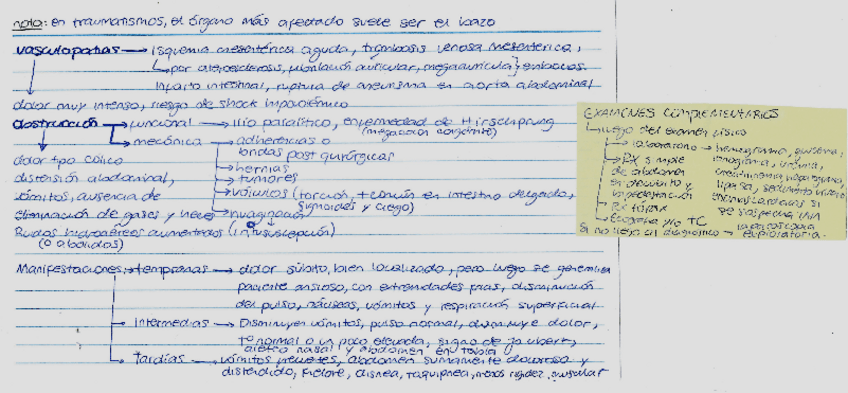 nota: en traumatismos, el órgano más afectado suele ser el bazo
vasculopatías → isquemia mesentérica aguda, trombosis venosa mesentérica,
por aterosclerosis, fibrilación auricular, megaaurícula } émbolos.
Infarto intestinal, ruptura de aneurisma en aorta abdominal
dolor muy intenso, riesgo de shock hipovolémico
obstrucción → funcional → Ilio paralítico, enfermedad de Hirschprung
(megacolon congénito)
mecánica → adherencias o
bandas post quirúrgicas
dolor tipo cólico
→ hernias
distensión abdominal,
→ tumores
vómitos, ausencia de
→ vólvulos (torsión, + común en intestino delgado,
sigmoides y ciego)
eliminación de gases y heces
→ invaginación
Ruidos hidroaéreos aumentados (intususcepción)
(o abolidos)
Manifestaciones → tempranas → dolor súbito, bien localizado, pero luego se generaliza
paciente ansioso, con extremidades frías, disminución
del pulso, náuseas, vómitos y respiración superficial
→ Intermedias → Disminuyen vómitos, pulso normal, disminuye dolor,
Tº normal o un poco elevada, signo de jaubert,
aleteo nasal y abdomen en tabla
→ Tardías → vómitos, abdomen sumamente doloroso y
distendido, fiebre, disnea, taquipnea, menos rigidez muscular
EXAMENES COMPLEMENTARIOS
luego del examen físico
→ laboratorio → hemograma, glicemia,
→ RX simple ionograma, uremia,
de abdomen creatininemia,
en decúbito y lipasa, sedimento urinario,
bipedestación enzimas cardíacas si
→ RX tórax se sospecha IAM
→ Ecografía y/o TC
si no llego al diagnóstico → laparoscopía exploratoria.